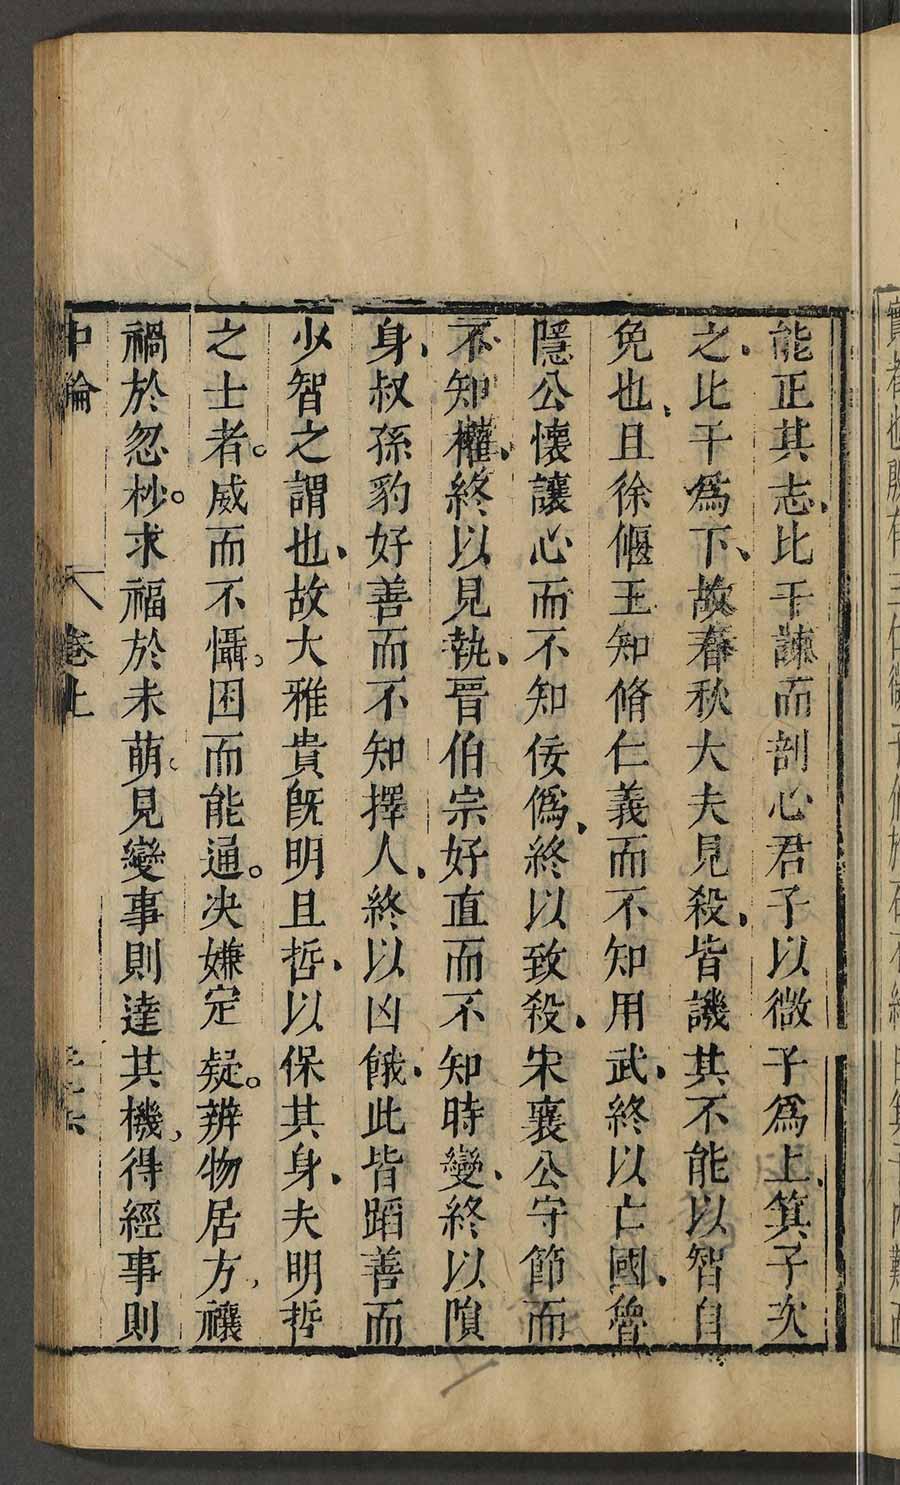 能正其志比干諫而剖心君子以微子爲上箕子次
之比干爲下故春秋大夫見殺皆譏其不能以智自
免也且徐偃王知脩仁義而不知用武終以亡國魯
隱公懷讓心而不知佞僞終以致殺宋襄公守節而
不知權終以見執晉伯宗好直而不知時變終以隕
身叔孫豹好善而不知擇人終以凶餓此皆蹈善而
少智之謂也故大雅貴旣明且哲以保其身夫明哲
之士者威而不懾困而能通決嫌定疑辨物居方禳
禍於忽杪求福於未萌見變事則達其機得經事則
中論 卷上